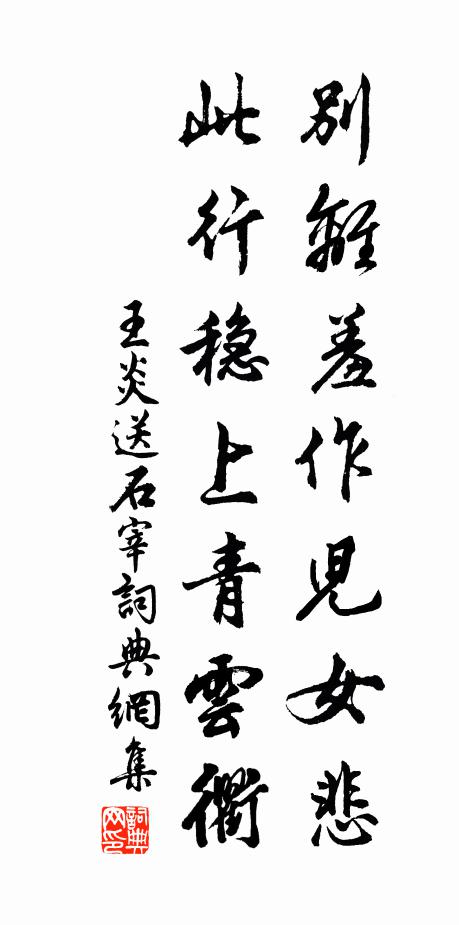 別離羞作兒女悲
此行穏上青雲衢
王炎送石宰詞典網集
詞典网印